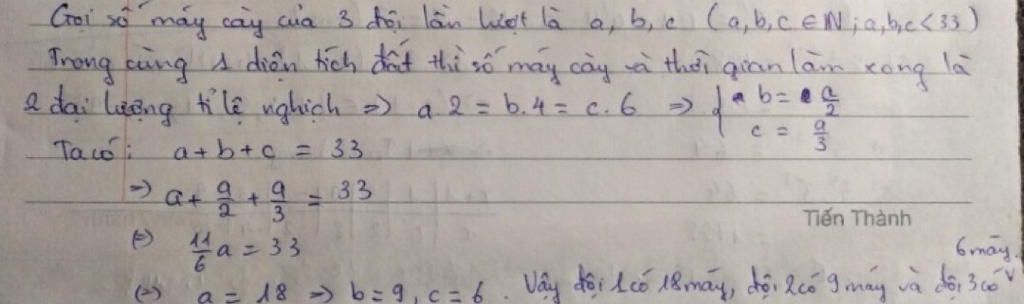 Gọi số máy cày của 3 đội lần lượt là a, b, c (a,b,c ∈ N; a,b,c < 33)
Trong cùng 1 diện tích đất thì số máy cày và thời gian làm xong là
2 đại lượng tỉ lệ nghịch => a.2 = b.4 = c.6 => { b = a/2
c = a/3
Ta có: a + b + c = 33
=> a + a/2 + a/3 = 33
Tiến Thành
(=) 11/6 a = 33
6 máy.
(=) a = 18 => b = 9, c = 6. Vậy đội 1 có 18 máy, đội 2 có 9 máy và đội 3 có